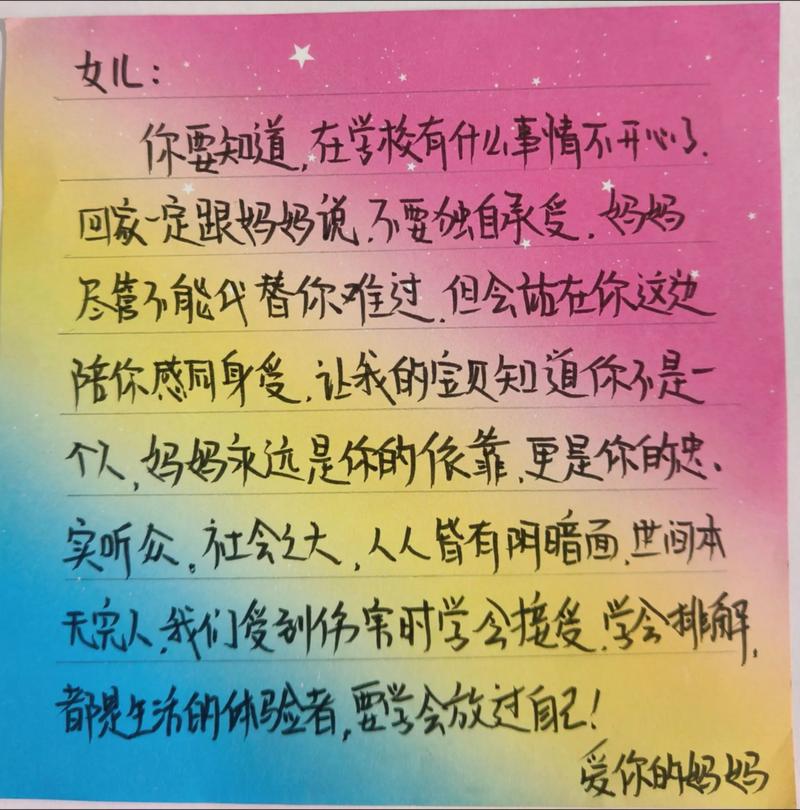 女儿：
你要知道，在学校有什么事情不开心了.
回家一定跟妈妈说.不要独自承受.妈妈
尽管不能代替你难过.但会站在你这边
陪你感同身受.让我的宝贝知道你不是一
个人,妈妈永远是你的依靠.更是你的忠、
实听众。社会之大,人人皆有阴暗面.世间本
无完人.我们受到伤害时学会接受.学会排解,
都是生活的体验者,要学会放过自己!
爱你的妈妈